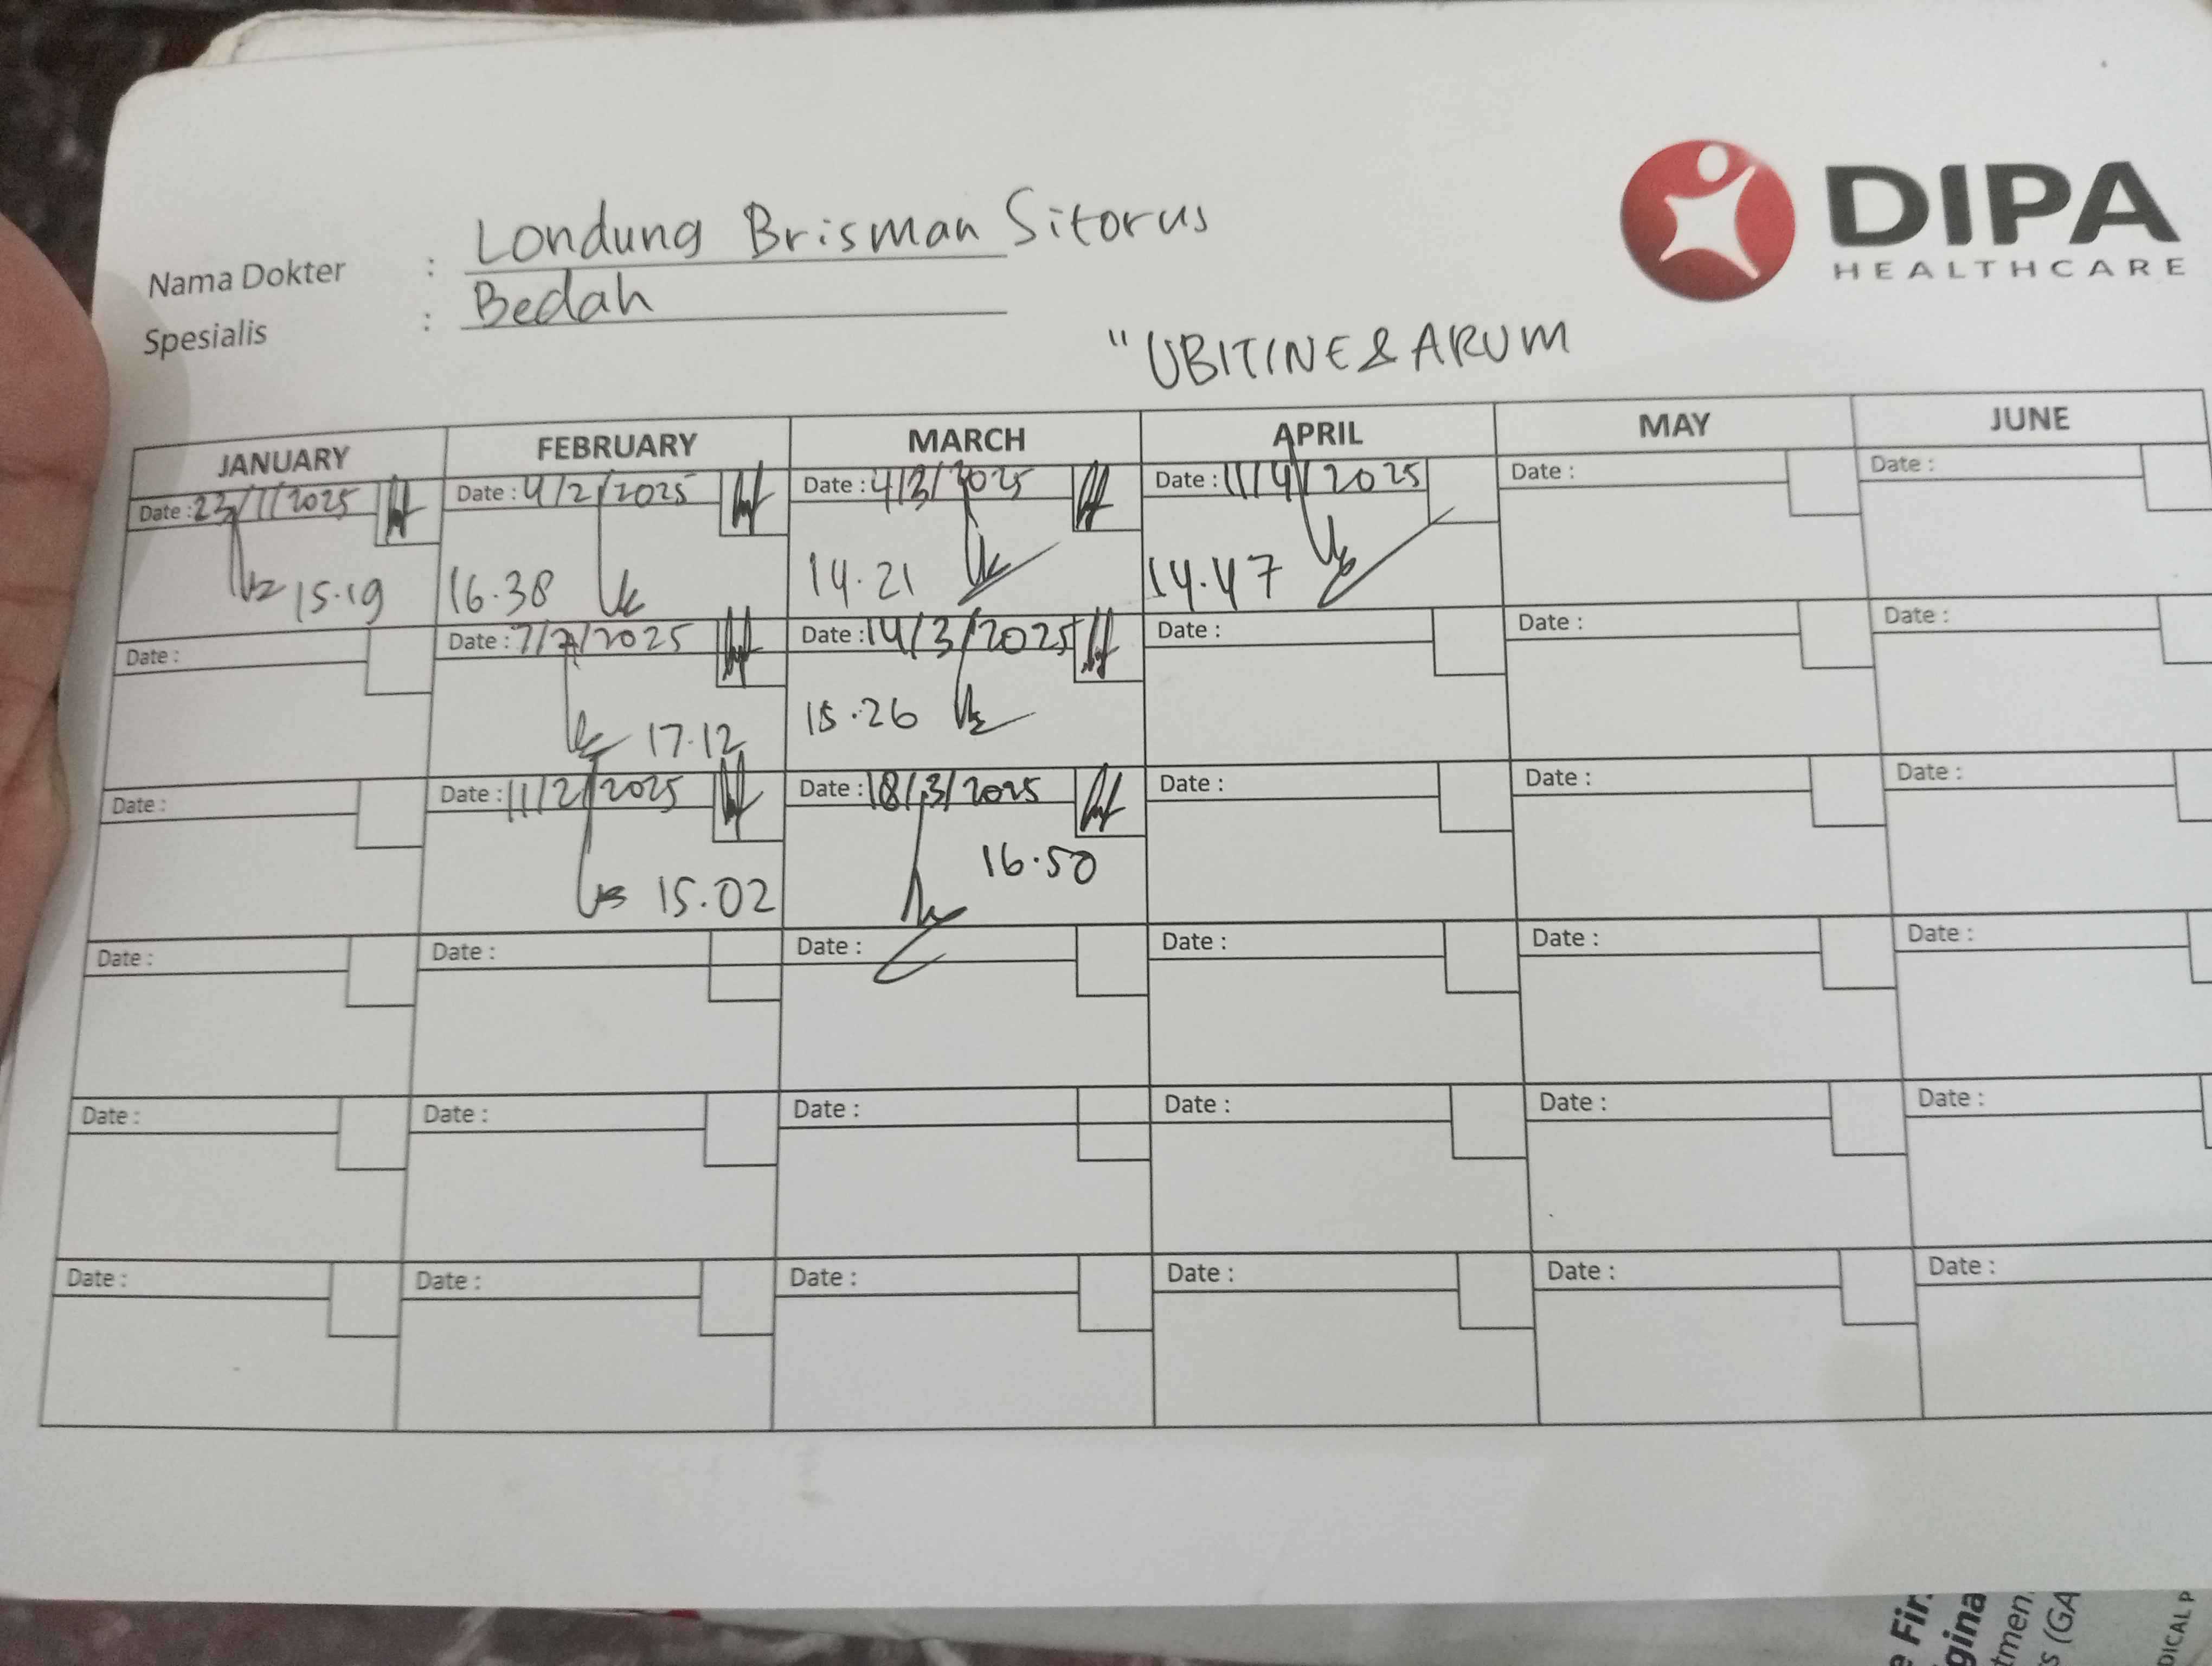 DIPA
HEALTHCARE
Nama Dokter : Londung Brisman Sitorus
Spesialis : Bedah
"UBITINE & ARUM
JANUARY FEBRUARY MARCH APRIL MAY JUNE
Date : 23/1/2025 Date : 4/2/2025 Date : 4/3/2025 Date : 11/4/2025 Date : Date :
15.19 16.38 14.21 14.47
Date : Date : 7/2/2025 Date : 14/3/2025 Date : Date : Date :
17.12 15.26
Date : Date : 11/2/2025 Date : 18/3/2025 Date : Date : Date :
15.02 16.50
Date : Date : Date : Date : Date : Date :
Date : Date : Date : Date : Date : Date :
Date : Date : Date : Date : Date : Date :